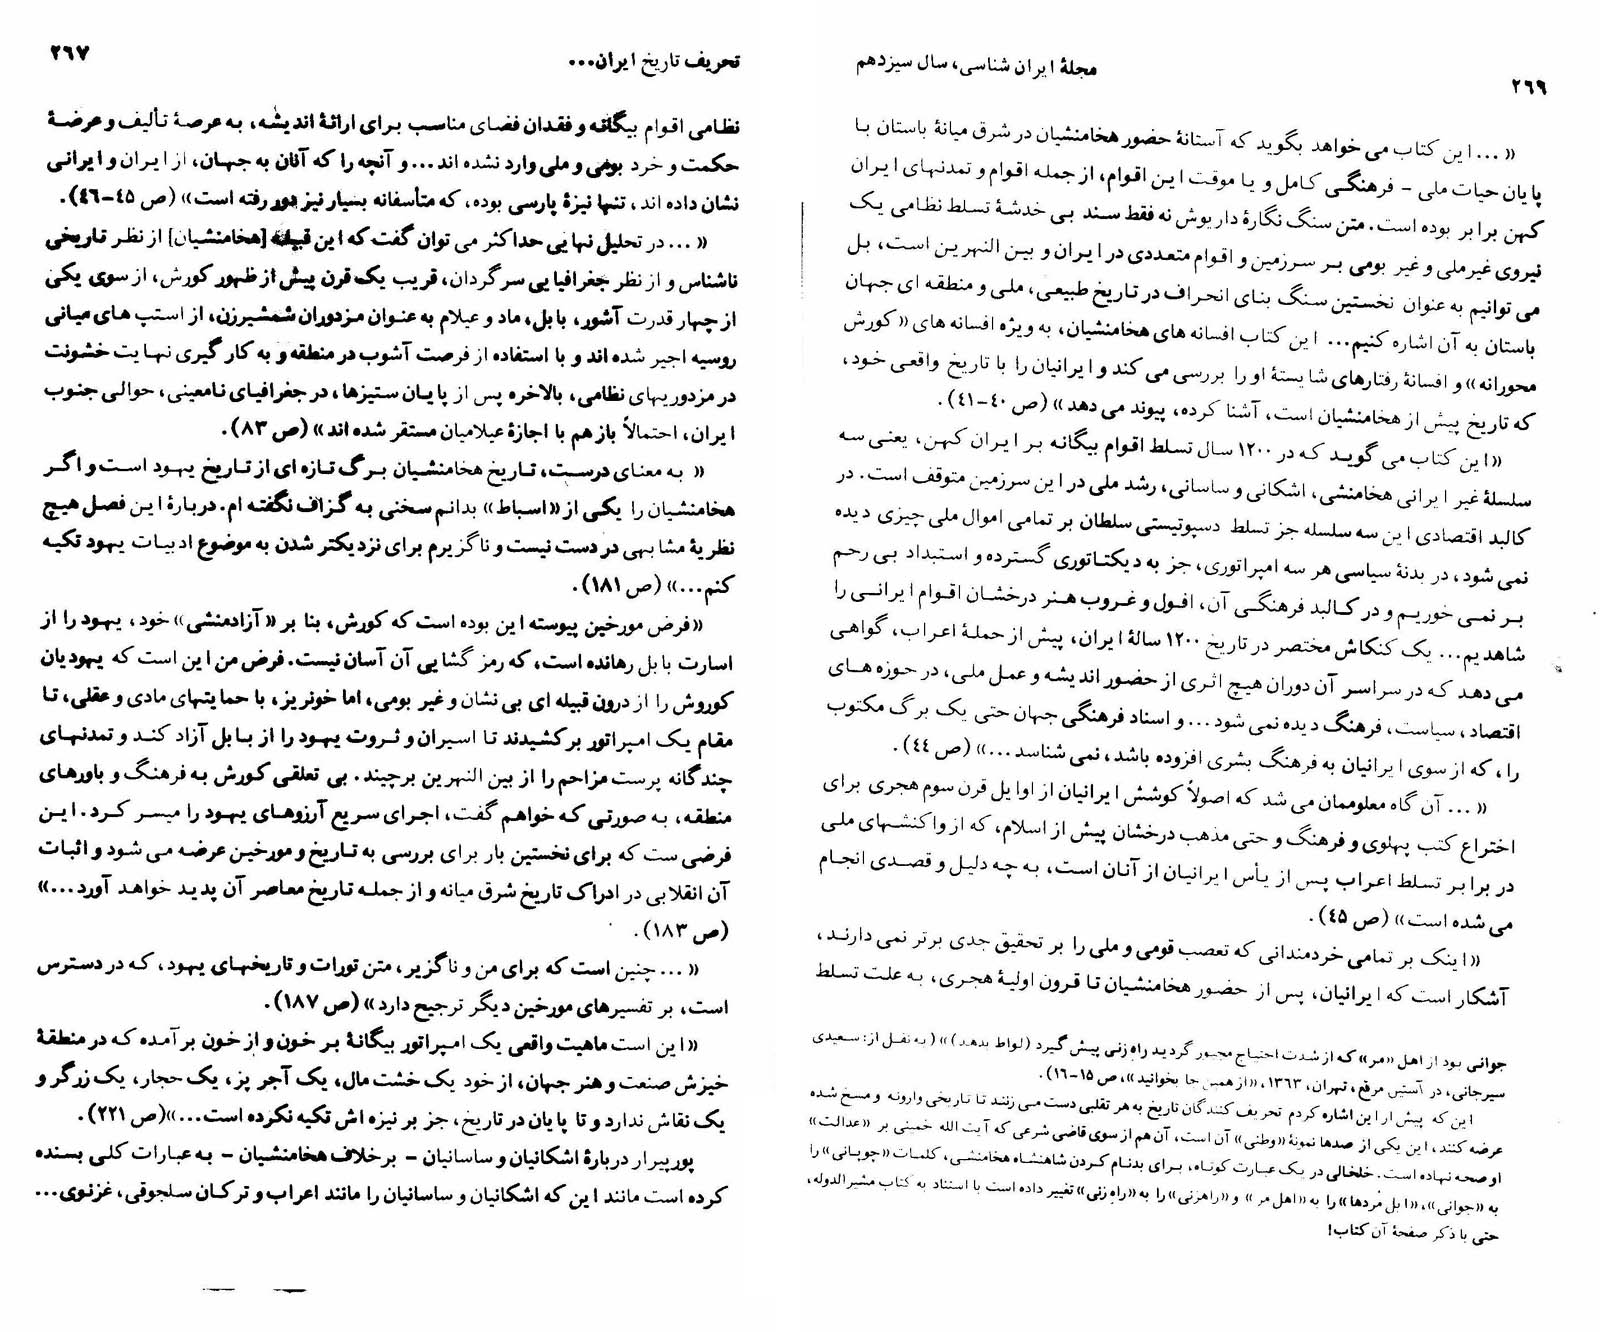 ۲۶۶
مجلهٔ ایران شناسی، سال سیزدهم
«...این کتاب می خواهد بگوید که آستانهٔ حضور هخامنشیان در شرق میانهٔ باستان با
پایان حیات ملی - فرهنگی کامل و یا موقت این اقوام، از جمله اقوام و تمدنهای ایران
کهن برابر بوده است. متن سنگ نگارهٔ داریوش نه فقط سند بی خدشهٔ تسلط نظامی یک
نیروی غیرملی و غیر بومی بر سرزمین و اقوام متعددی در ایران و بین النهرین است، بل
می توانیم به عنوان نخستین سنگ بنای انحراف در تاریخ طبیعی، ملی و منطقه ای جهان
باستان به آن اشاره کنیم... این کتاب افسانه های هخامنشیان، به ویژه افسانه های «کورش
محورانه» و افسانهٔ رفتارهای شایستهٔ او را بررسی می کند و ایرانیان را با تاریخ واقعی خود،
که تاریخ پیش از هخامنشیان است، آشنا کرده، پیوند می دهد» (ص ۴۰-۴۱).
«این کتاب می گوید که در ۱۲۰۰ سال تسلط اقوام بیگانه بر ایران کهن، یعنی سه
سلسلهٔ غیر ایرانی هخامنشی، اشکانی و ساسانی، رشد ملی در این سرزمین متوقف است. در
کالبد اقتصادی این سه سلسله جز تسلط دسپوتیستی سلطان بر تمامی اموال ملی چیزی دیده
نمی شود، در بدنهٔ سیاسی هر سه امپراتوری، جز به دیکتاتوری گسترده و استبداد بی رحم
بر نمی خوریم و در کالبد فرهنگی آن، افول و غروب هنر درخشان اقوام ایرانی را
شاهدیم... یک کنکاش مختصر در تاریخ ۱۲۰۰ سالهٔ ایران، پیش از حملهٔ اعراب، گواهی
می دهد که در سراسر آن دوران هیچ اثری از حضور اندیشه و عمل ملی، در حوزه های
اقتصاد، سیاست، فرهنگ دیده نمی شود... و اسناد فرهنگی جهان حتی یک برگ مکتوب
را، که از سوی ایرانیان به فرهنگ بشری افزوده باشد، نمی شناسد...» (ص ۴۴).
«... آن گاه معلوممان می شد که اصولاً کوشش ایرانیان از اوایل قرن سوم هجری برای
اختراع کتب پهلوی و فرهنگ و حتی مذهب درخشان پیش از اسلام، که از واکنشهای ملی
در برابر تسلط اعراب پس از یأس ایرانیان از آنان است، به چه دلیل و قصدی انجام
می شده است» (ص ۴۵).
«اینک بر تمامی خردمندانی که تعصب قومی و ملی را بر تحقیق جدی برتر نمی دارند،
آشکار است که ایرانیان، پس از حضور هخامنشیان تا قرون اولیهٔ هجری، به علت تسلط
جوانی بود از اهل «مر» که از شدت احتیاج مجبور گردید راه زنی پیش گیرد (لواط بدهد)» (به نقل از: سعیدی
سیرجانی، در آستین مرقع، تهران، ۱۳۶۳، «از همین جا بخوانید»، ص ۱۵-۱۶).
این که پیش از این اشاره کردم تحریف کنندگان تاریخ به هر تقلبی دست می زنند تا تاریخی وارونه و مسخ شده
عرضه کنند، این یکی از صدها نمونهٔ «وطنی» آن است، آن هم از سوی قاضی شرعی که آیت الله خمینی بر «عدالت»
او صحه نهاده است. خلخالی در یک عبارت کوتاه، برای بدنام کردن شاهنشاه هخامنشی، کلمات «چوپانی» را
به «جوانی»، «ایل مُردها» را به «اهل مر» و «راهزنی» را به «راهِ زنی» تغییر داده است با استناد به کتاب مشیرالدوله،
حتی با ذکر صفحهٔ آن کتاب!
تحریف تاریخ ایران...
۲۶۷
نظامی اقوام بیگانه و فقدان فضای مناسب برای ارائهٔ اندیشه، به عرصهٔ تألیف و عرضهٔ
حکمت و خرد بومی و ملی وارد نشده اند... و آنچه را که آنان به جهان، از ایران و ایرانی
نشان داده اند، تنها نیزهٔ پارسی بوده، که متأسفانه بسیار نیز دور رفته است» (ص ۴۵-۴۶).
«... در تحلیل نهایی حداکثر می توان گفت که این قبیله [هخامنشیان] از نظر تاریخی
ناشناس و از نظر جغرافیایی سرگردان، قریب یک قرن پیش از ظهور کورش، از سوی یکی
از چهار قدرت آشور، بابل، ماد و عیلام به عنوان مزدوران شمشیرزن، از استپ های میانی
روسیه اجیر شده اند و با استفاده از فرصت آشوب در منطقه و به کار گیری نهایت خشونت
در مزدوریهای نظامی، بالاخره پس از پایان ستیزها، در جغرافیای نامعینی، حوالی جنوب
ایران، احتمالاً باز هم با اجازهٔ عیلامیان مستقر شده اند» (ص ۸۳).
« به معنای درست، تاریخ هخامنشیان برگ تازه ای از تاریخ یهود است و اگر
هخامنشیان را یکی از «اسباط» بدانم سخنی به گزاف نگفته ام. دربارهٔ این فصل هیچ
نظریهٔ مشابهی در دست نیست و ناگزیرم برای نزدیکتر شدن به موضوع ادبیات یهود تکیه
کنم...» (ص ۱۸۱).
«فرض مورخین پیوسته این بوده است که کورش، بنا بر «آزادمنشی» خود، یهود را از
اسارت بابل رهانده است، که رمز گشایی آن آسان نیست. فرض من این است که یهودیان
کوروش را از درون قبیله ای بی نشان و غیر بومی، اما خونریز، با حمایتهای مادی و عقلی، تا
مقام یک امپراتور برکشیدند تا اسیران و ثروت یهود را از بابل آزاد کند و تمدنهای
چندگانه پرست مزاحم را از بین النهرین برچیند. بی تعلقی کورش به فرهنگ و باورهای
منطقه، به صورتی که خواهم گفت، اجرای سریع آرزوهای یهود را میسر کرد. این
فرضی ست که برای نخستین بار برای بررسی به تاریخ و مورخین عرضه می شود و اثبات
آن انقلابی در ادراک تاریخ شرق میانه و از جمله تاریخ معاصر آن پدید خواهد آورد...»
(ص ۱۸۳).
«... چنین است که برای من و ناگزیر، متن تورات و تاریخهای یهود، که در دسترس
است، بر تفسیرهای مورخین دیگر ترجیح دارد» (ص ۱۸۷).
«این است ماهیت واقعی یک امپراتور بیگانهٔ بر خون و از خون برآمده که در منطقهٔ
خیزش صنعت و هنر جهان، از خود یک خشت مال، یک آجر پز، یک حجار، یک زرگر و
یک نقاش ندارد و تا پایان در تاریخ، جز بر نیزه اش تکیه نکرده است...»(ص ۲۲۱).
پورپیرار دربارهٔ اشکانیان و ساسانیان - برخلاف هخامنشیان - به عبارات کلی بسنده
کرده است مانند این که اشکانیان و ساسانیان را مانند اعراب و ترکان سلجوقی، غزنوی...